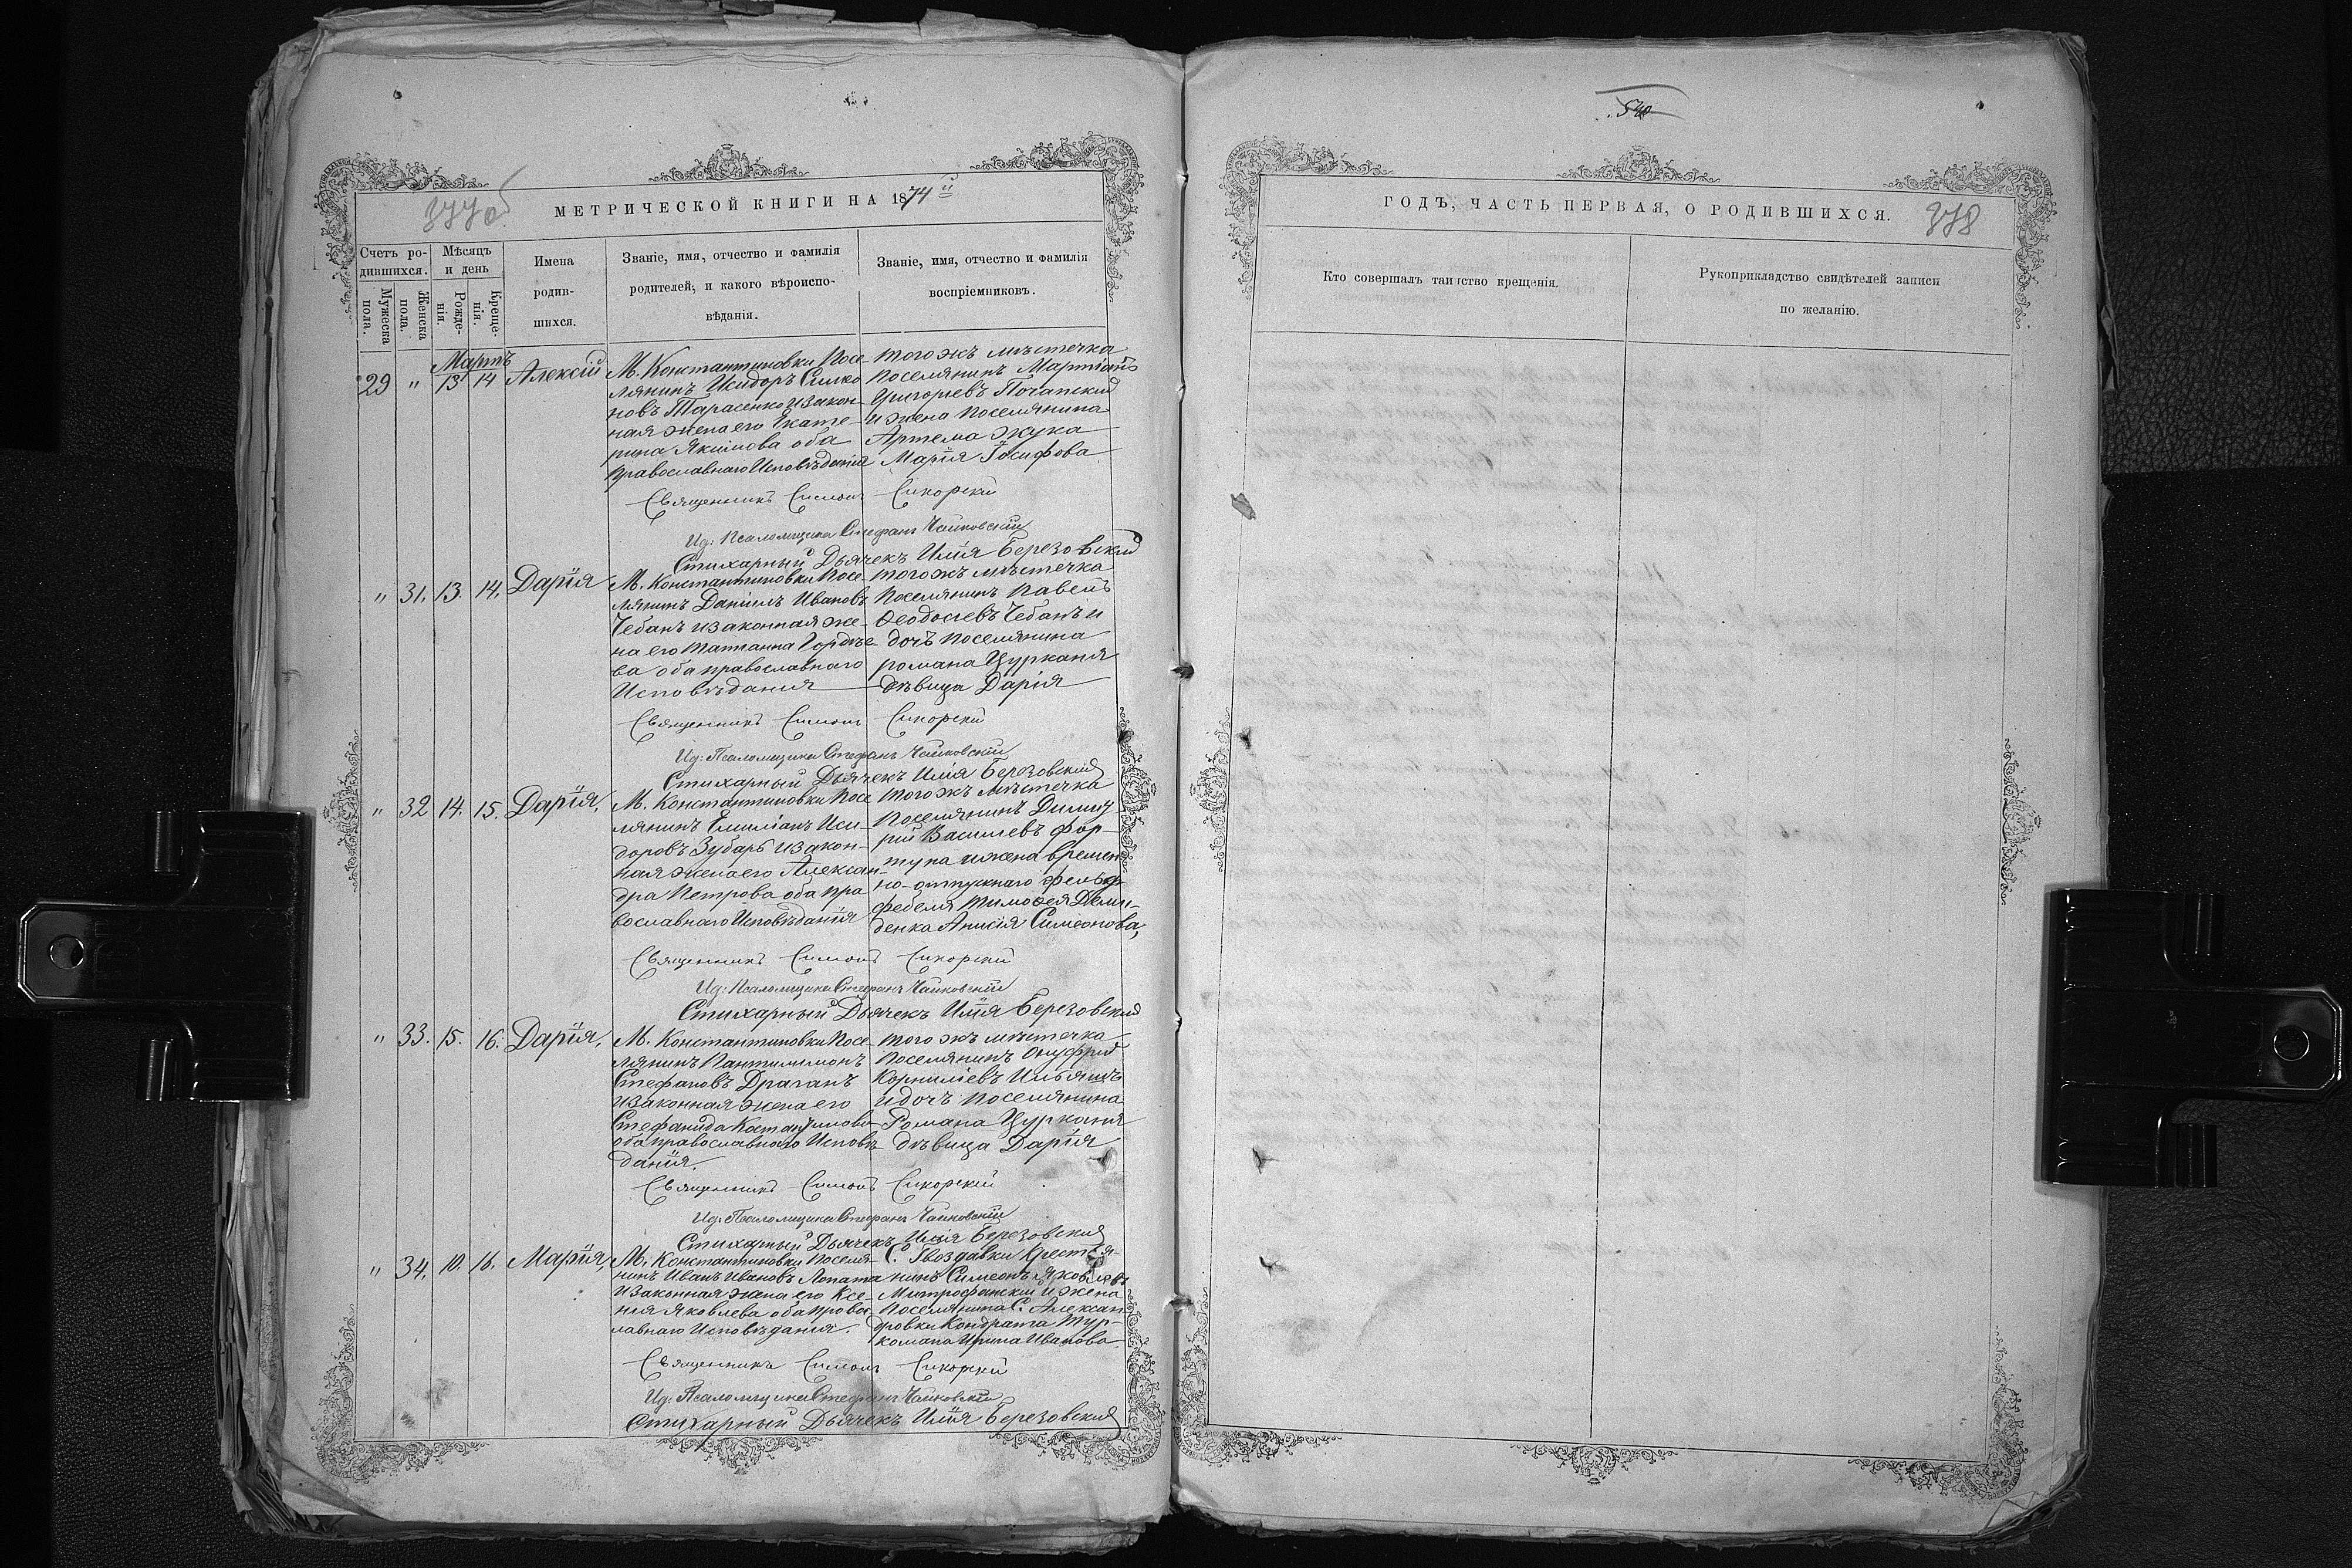 540
377 об
МЕТРИЧЕСКОЙ КНИГИ НА 1874й
Счетъ ро-
дившихся.
Мужеска пола.
Женска пола.
Мѣсяцъ
и день
Рожде-
нія.
Креще-
нія.
Имена
родив-
шихся.
Званіе, имя, отчество и фамилія
родителей, и какого вѣроиспо-
вѣданія.
Званіе, имя, отчество и фамилія
воспріемниковъ.
Мартъ
29 " 13 14 Алексій
М. Константиновки Посе-
лянинъ Исидоръ Симео
новъ Тарасенко и закон-
ная жена его Екате-
рина Якимова оба
православнаго Исповѣданія
того жъ мѣстечка
Поселянинъ
Григорьевъ Почапский
и жена Поселянина
Артема Жука
Марія Іосифова
Священникъ Симонъ Сикорскій
Ид: Псаломщика Стефанъ Чайковскій
Стихарный Дьячекъ Илія Березовскій
" 31. 13. 14. Дарія
М. Константиновки Посе-
лянинъ Даніилъ Ивановъ
Чебанъ и законная же-
на его Татіанна Гордѣе-
ва оба православнаго
Исповѣданія
того жъ мѣстечка
Поселянинъ Павелъ
Ѳеодосіевъ Чебанъ и
дочъ поселянина
романа Цурканя
дѣвица Дарія
Священникъ Симонъ Сикорскій
Ид: Псаломщика Стефанъ Чайковскій
Стихарный Дьячекъ Илія Березовскій
" 32 14. 15. Дарія,
М. Константиновки Посе
лянинъ Емиліанъ Иси-
доровъ Зубарь и закон-
ная жена его Алексан-
дра Петрова оба пра
вославнаго Исповѣданія
того жъ мѣстечка
Поселянинъ Димит
рій Василіевъ Фор-
туна и жена времен
но-отпускнаго фельд
фебеля Тимоѳея Деми-
денка Анисія Симеонова,
Священникъ Симонъ Сикорскій
Ид: Псаломщика Стефанъ Чайковскій
Стихарный Дьячекъ Илія Березовскій
" 33. 15. 16. Дарія,
М. Константиновки Посе-
лянинъ Пантилимонъ
Стефановъ Драганъ
и законная жена его
Стефанида
оба православнаго Исповѣ
данія.
того жъ мѣстечка
Поселянинъ Онуфрій
Корниліевъ Ильяшъ
и дочъ поселянина
Романа Цурканя
дѣвица Дарія
Священникъ Симонъ Сикорскій
Ид: Псаломщика Стефанъ Чайковскій
Стихарный Дьячекъ Илія Березовскій
" 34. 10. 16. Марія,
М. Константиновки Поселя-
нинъ Иванъ Ивановъ Лопата
и законная жена его Ксе-
нія Яковлева оба правос
лавнаго Исповѣданія.
С. Гвоздавки Крестья-
нинъ Симеонъ Яковлевъ
Митрофанскій и жена
Поселянина С. Алексан
дровки Кондрата Тур-
комана Ирина Иванова
Священникъ Симонъ Сикорскій
Ид: Псаломщика Стефанъ Чайковскій
Стихарный Дьячекъ Илія Березовскій
ГОДЪ, ЧАСТЬ ПЕРВАЯ, О РОДИВШИХСЯ.
378
Кто совершалъ таинство крещенія.
Рукоприкладство свидѣтелей записи
по желанію.